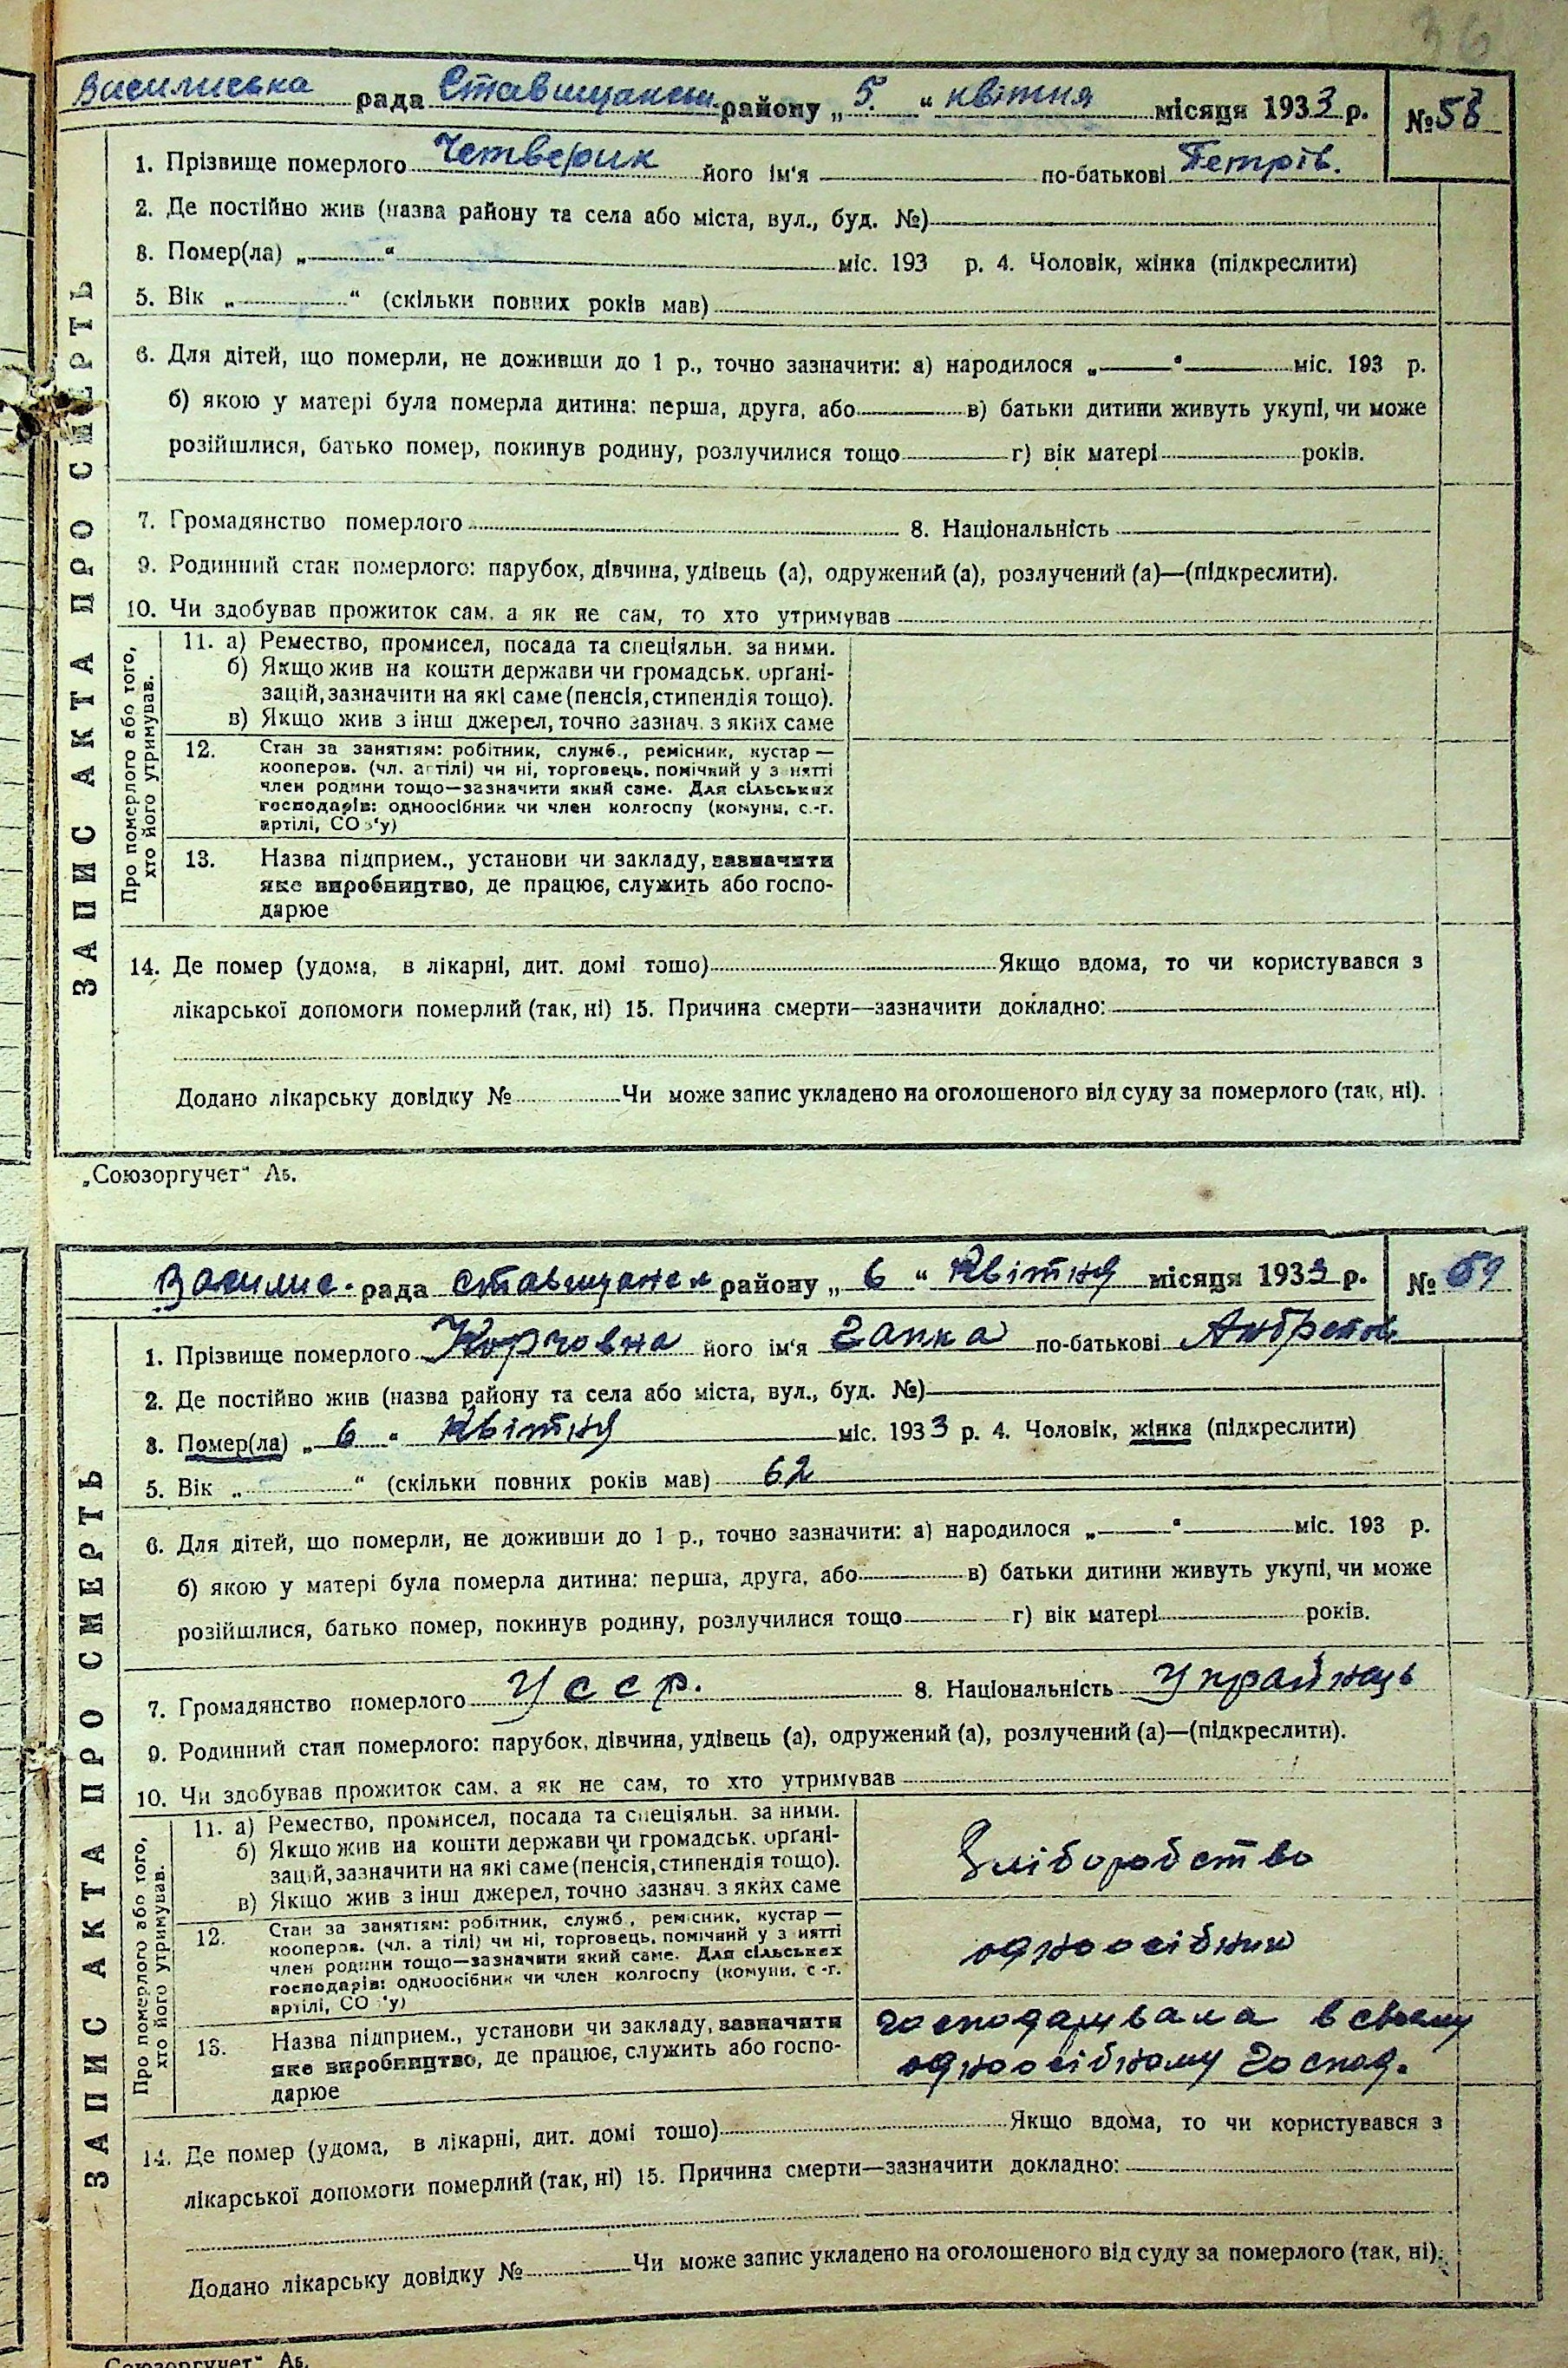 36
Василиська рада Ставищанськ. району „ 5. “ квітня місяця 1933 р. № 58
1. Прізвище померлого Четверик його ім'я по-батькові Петрів.
2. Де постійно жив (назва району та села або міста, вул., буд. №)
3. Помер(ла) „ “ міс. 193 р. 4. Чоловік, жінка (підкреслити)
5. Вік „ “ (скільки повних років мав)
6. Для дітей, що померли, не доживши до 1 р., точно зазначити: а) народилося „ “ міс. 193 р.
б) якою у матері була померла дитина: перша, друга, або в) батьки дитини живуть укупі, чи може
розійшлися, батько помер, покинув родину, розлучилися тощо г) вік матері років.
7. Громадянство померлого 8. Національність
9. Родинний стан померлого: парубок, дівчина, удівець (а), одружений (а), розлучений (а)—(підкреслити).
10. Чи здобував прожиток сам, а як не сам, то хто утримував
ЗАПИС АКТА ПРО СМЕРТЬ
Про померлого або того,
хто його утримував.
11. а) Ремество, промисел, посада та спеціяльн. за ними.
б) Якщо жив на кошти держави чи громадськ. орґані-
зацій, зазначити на які саме (пенсія, стипендія тощо).
в) Якщо жив з інш джерел, точно зазнач. з яких саме
12. Стан за заняттям: робітник, служб., ремісник, кустар —
кооперов. (чл. артілі) чи ні, торговець, помічний у занятті
член родини тощо—зазначити який саме. Для сільських
господарів: одноосібник чи член колгоспу (комуни, с.-г.
артілі, СОЗ'у)
13. Назва підприєм., установи чи закладу, зазначити
яке виробництво, де працює, служить або госпо-
дарює
14. Де помер (удома, в лікарні, дит. домі тощо) Якщо вдома, то чи користувався з
лікарської допомоги померлий (так, ні) 15. Причина смерти—зазначити докладно:
Додано лікарську довідку № Чи може запис укладено на оголошеного від суду за померлого (так, ні).
„Союзоргучет“ Аб.
Василис. рада Ставищанск району „ 6 “ Квітня місяця 1933 р. № 59
1. Прізвище померлого Корчовна його ім'я Гапка по-батькові
2. Де постійно жив (назва району та села або міста, вул., буд. №)
3. Помер(ла) „ 6 “ Квітня міс. 1933 р. 4. Чоловік, жінка (підкреслити)
5. Вік „ “ (скільки повних років мав) 62
6. Для дітей, що померли, не доживши до 1 р., точно зазначити: а) народилося „ “ міс. 193 р.
б) якою у матері була померла дитина: перша, друга, або в) батьки дитини живуть укупі, чи може
розійшлися, батько помер, покинув родину, розлучилися тощо г) вік матері років.
7. Громадянство померлого У с с р. 8. Національність Українець
9. Родинний стан померлого: парубок, дівчина, удівець (а), одружений (а), розлучений (а)—(підкреслити).
10. Чи здобував прожиток сам, а як не сам, то хто утримував
ЗАПИС АКТА ПРО СМЕРТЬ
Про померлого або того,
хто його утримував.
11. а) Ремество, промисел, посада та спеціяльн. за ними.
б) Якщо жив на кошти держави чи громадськ. орґані-
зацій, зазначити на які саме (пенсія, стипендія тощо).
в) Якщо жив з інш джерел, точно зазнач. з яких саме
Хліборобство
12. Стан за заняттям: робітник, служб., ремісник, кустар —
кооперов. (чл. артілі) чи ні, торговець, помічний у занятті
член родини тощо—зазначити який саме. Для сільських
господарів: одноосібник чи член колгоспу (комуни, с.-г.
артілі, СОЗ'у)
одноосібник
13. Назва підприєм., установи чи закладу, зазначити
яке виробництво, де працює, служить або госпо-
дарює
господарювала в своєму
одноосібному господ.
14. Де помер (удома, в лікарні, дит. домі тощо) Якщо вдома, то чи користувався з
лікарської допомоги померлий (так, ні) 15. Причина смерти—зазначити докладно:
Додано лікарську довідку № Чи може запис укладено на оголошеного від суду за померлого (так, ні).
„Союзоргучет“ Аб.